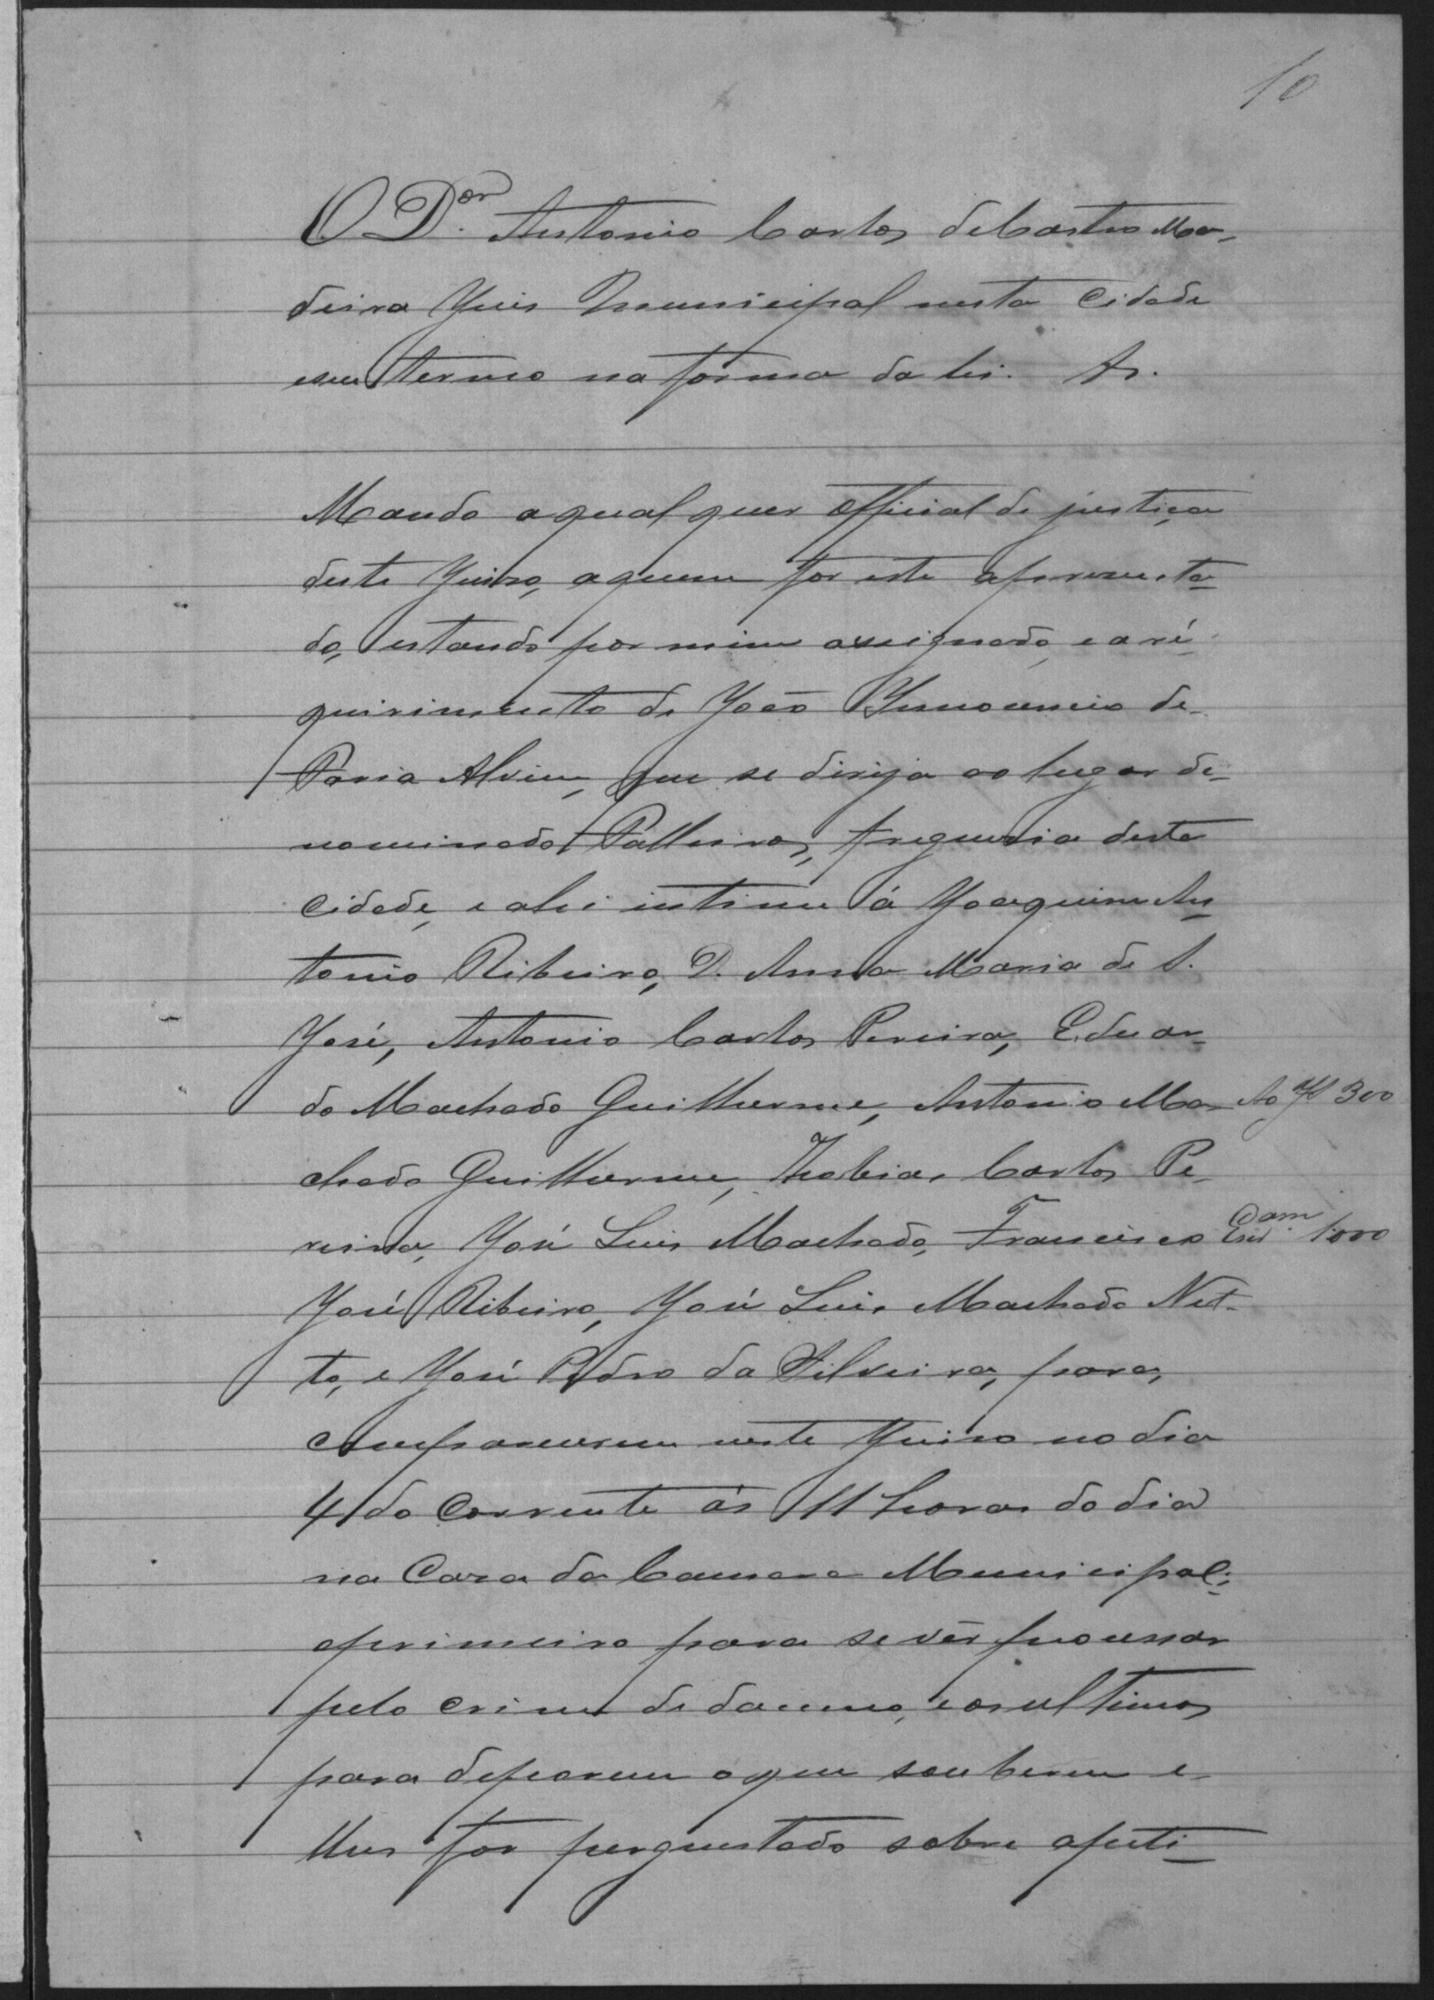 10
O D.or Antonio Carlos de Castro Ma-
deira Juis Municipal nesta Cidade
e seu termo na forma da lei.
Mando a qual quer official de justiça
deste Juiso, a quem for este apresenta-
do, estando por mim assignado, e a re-
quirimento de João Innocencio de
Faria Alvim, que se dirija ao lugar de-
nominado Palheiros, freguesia desta
Cidade, e ahi intime á Joaquim An-
tonio Ribeiro, D. Anna Maria de S.
José, Antonio Carlos Pereira, Eduar-
do Machado Guilherme, Antonio Ma-
300
chado Guilherme, Thobias Carlos Pe-
reira, José Luis Machado, Francisco
1:000
José Ribeiro, José Luis Machado Net-
to, e José Pedro da Silveira, para,
comparecerem neste Juiso no dia
4 do Corrente ás 11 horas do dia
na Casa da Camara Municipal;
o primeiro para se vêr processar
pelo crime de damno, e os ultimos
para deporem o que souberem e
lhes for perguntado sobre a peti-